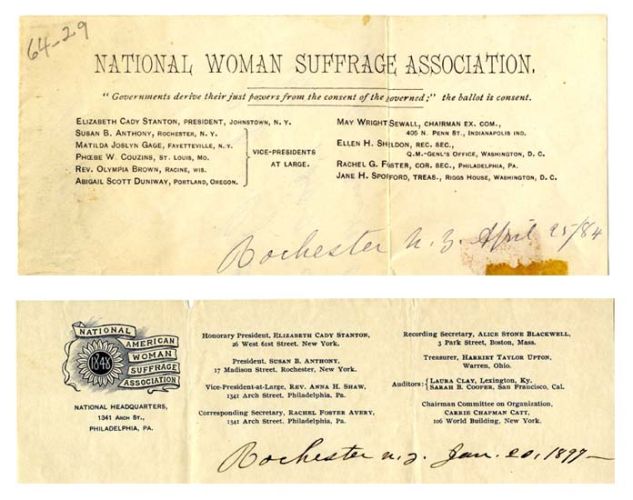 64-29
NATIONAL WOMAN SUFFRAGE ASSOCIATION.
"Governments derive their just powers from the consent of the governed;" the ballot is consent.
ELIZABETH CADY STANTON, PRESIDENT, JOHNSTOWN, N. Y.
SUSAN B. ANTHONY, ROCHESTER, N. Y.
MATILDA JOSLYN GAGE, FAYETTEVILLE, N. Y.
PHŒBE W. COUZINS, ST. LOUIS, MO.
REV. OLYMPIA BROWN, RACINE, WIS.
ABIGAIL SCOTT DUNIWAY, PORTLAND, OREGON.
VICE-PRESIDENTS
AT LARGE.
MAY WRIGHT SEWALL, CHAIRMAN EX. COM.,
405 N. PENN ST., INDIANAPOLIS IND.
ELLEN H. SHELDON, REC. SEC.,
Q.M.-GENL'S OFFICE, WASHINGTON, D. C.
RACHEL G. FOSTER, COR. SEC., PHILADELPHIA, PA.
JANE H. SPOFFORD, TREAS., RIGGS HOUSE, WASHINGTON, D. C.
Rochester N. Y. April 25/84
NATIONAL
AMERICAN
WOMAN
SUFFRAGE
ASSOCIATION
1848
NATIONAL HEADQUARTERS,
1341 ARCH ST.,
PHILADELPHIA, PA.
Honorary President, ELIZABETH CADY STANTON,
26 West 61st Street, New York.
President, SUSAN B. ANTHONY,
17 Madison Street, Rochester, New York.
Vice-President-at-Large, REV. ANNA H. SHAW,
1341 Arch Street, Philadelphia, Pa.
Corresponding Secretary, RACHEL FOSTER AVERY,
1341 Arch Street, Philadelphia, Pa.
Recording Secretary, ALICE STONE BLACKWELL,
3 Park Street, Boston, Mass.
Treasurer, HARRIET TAYLOR UPTON,
Warren, Ohio.
Auditors: LAURA CLAY, Lexington, Ky.
SARAH B. COOPER, San Francisco, Cal.
Chairman Committee on Organization,
CARRIE CHAPMAN CATT,
106 World Building, New York.
Rochester N. Y. Jan. 20, 1897—